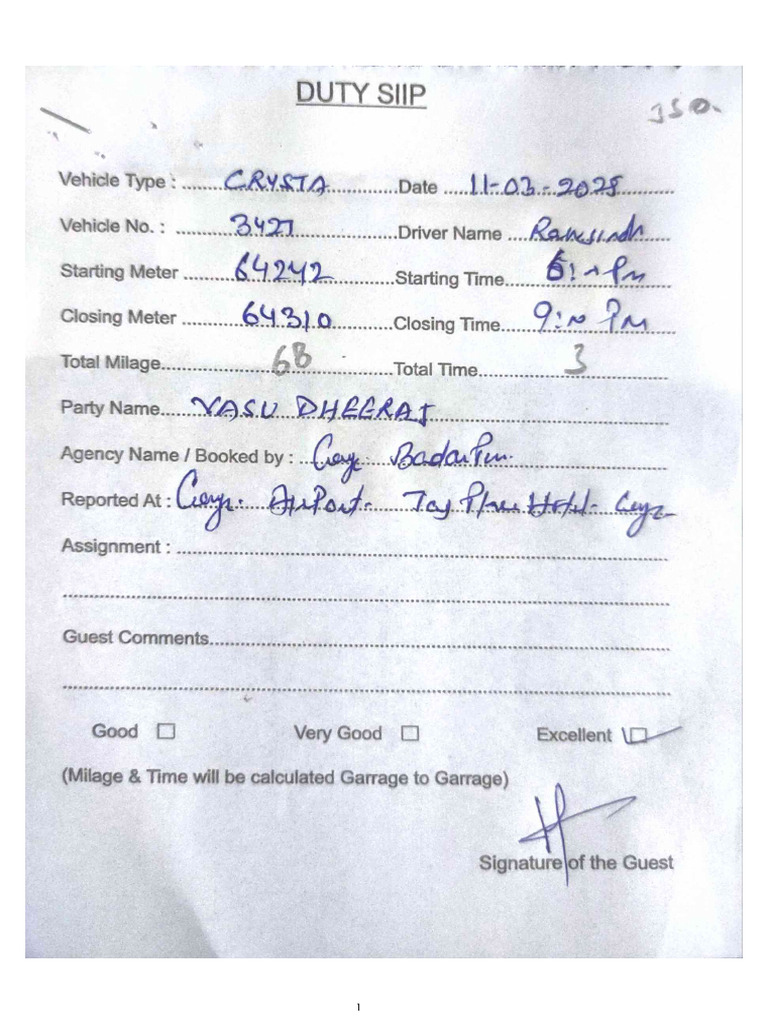 DUTY SIIP
350.
Vehicle Type : CRYSTA Date 11-03-2025
Vehicle No. : 3427 Driver Name
Starting Meter 64242 Starting Time PM
Closing Meter 64310 Closing Time 9: PM
Total Milage 68 Total Time 3
Party Name VASU DHEERAJ
Agency Name / Booked by :
Reported At : Airport- Taj Hotel-
Assignment :
Guest Comments
Good Very Good Excellent
(Milage & Time will be calculated Garrage to Garrage)
Signature of the Guest
1